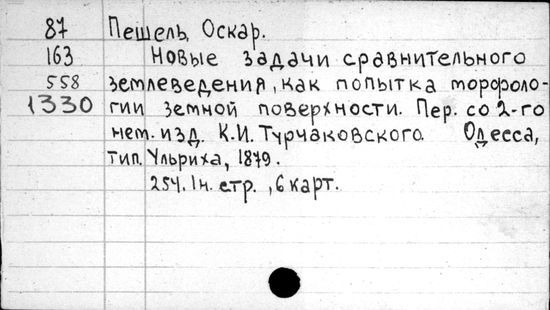 87 Пешель, Оскар.
163 Новые задачи сравнительного
558 землеведения, как попытка морфоло-
1330 гии земной поверхности. Пер. со 2-го
нем. изд. К.И. Турчаковского Одесса,
тип. Ульриха, 1879.
254. 1н. стр., 6 карт.